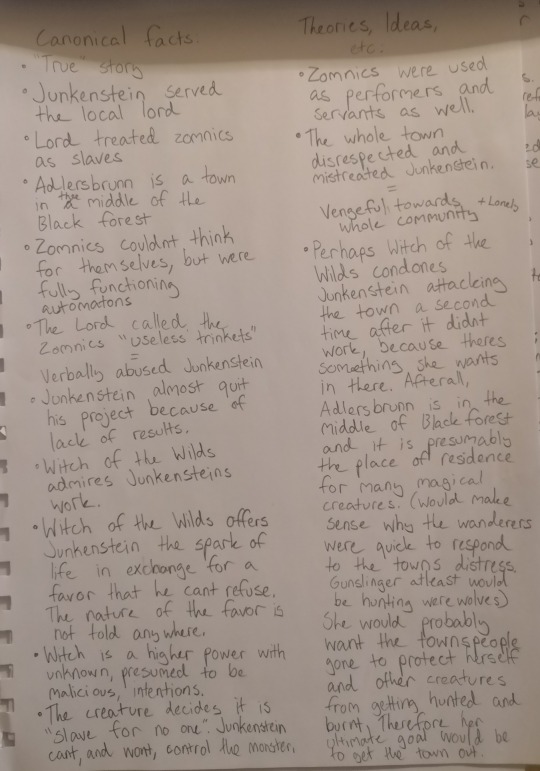 Canonical facts:
• "True" story
• Junkenstein served
the local lord
• Lord treated zomnics
as slaves
• Adlersbrunn is a town
in the middle of the
Black forest
• Zomnics couldnt think
for themselves, but were
fully functioning
automatons
• The Lord called the
Zomnics "useless trinkets"
=
Verbally abused Junkenstein
• Junkenstein almost quit
his project because of
lack of results.
• Witch of the Wilds
admires Junkensteins
work.
• Witch of the Wilds offers
Junkenstein the spark of
life in exchange for a
favor that he cant refuse.
The nature of the favor is
not told anywhere.
• Witch is a higher power with
unknown, presumed to be
malicious, intentions.
• The creature decides it is
"slave for no one". Junkenstein
cant, and wont, control the monster.
Theories, Ideas,
etc:
• Zomnics were used
as performers and
servants as well.
• The whole town
disrespected and
mistreated Junkenstein.
=
Vengeful towards + Lonely
whole community
• Perhaps Witch of the
Wilds condones
Junkenstein attacking
the town a second
time after it didnt
work, because theres
something she wants
in there. Afterall,
Adlersbrunn is in the
middle of Black forest
and it is presumably
the place of residence
for many magical
creatures. (Would make
sense why the wanderers
were quick to respond
to the towns distress.
Gunslinger atleast would
be hunting werewolves)
She would probably
want the townspeople
gone to protect herself
and other creatures
from getting hunted and
burnt. Therefore her
ultimate goal would be
to get the town out.